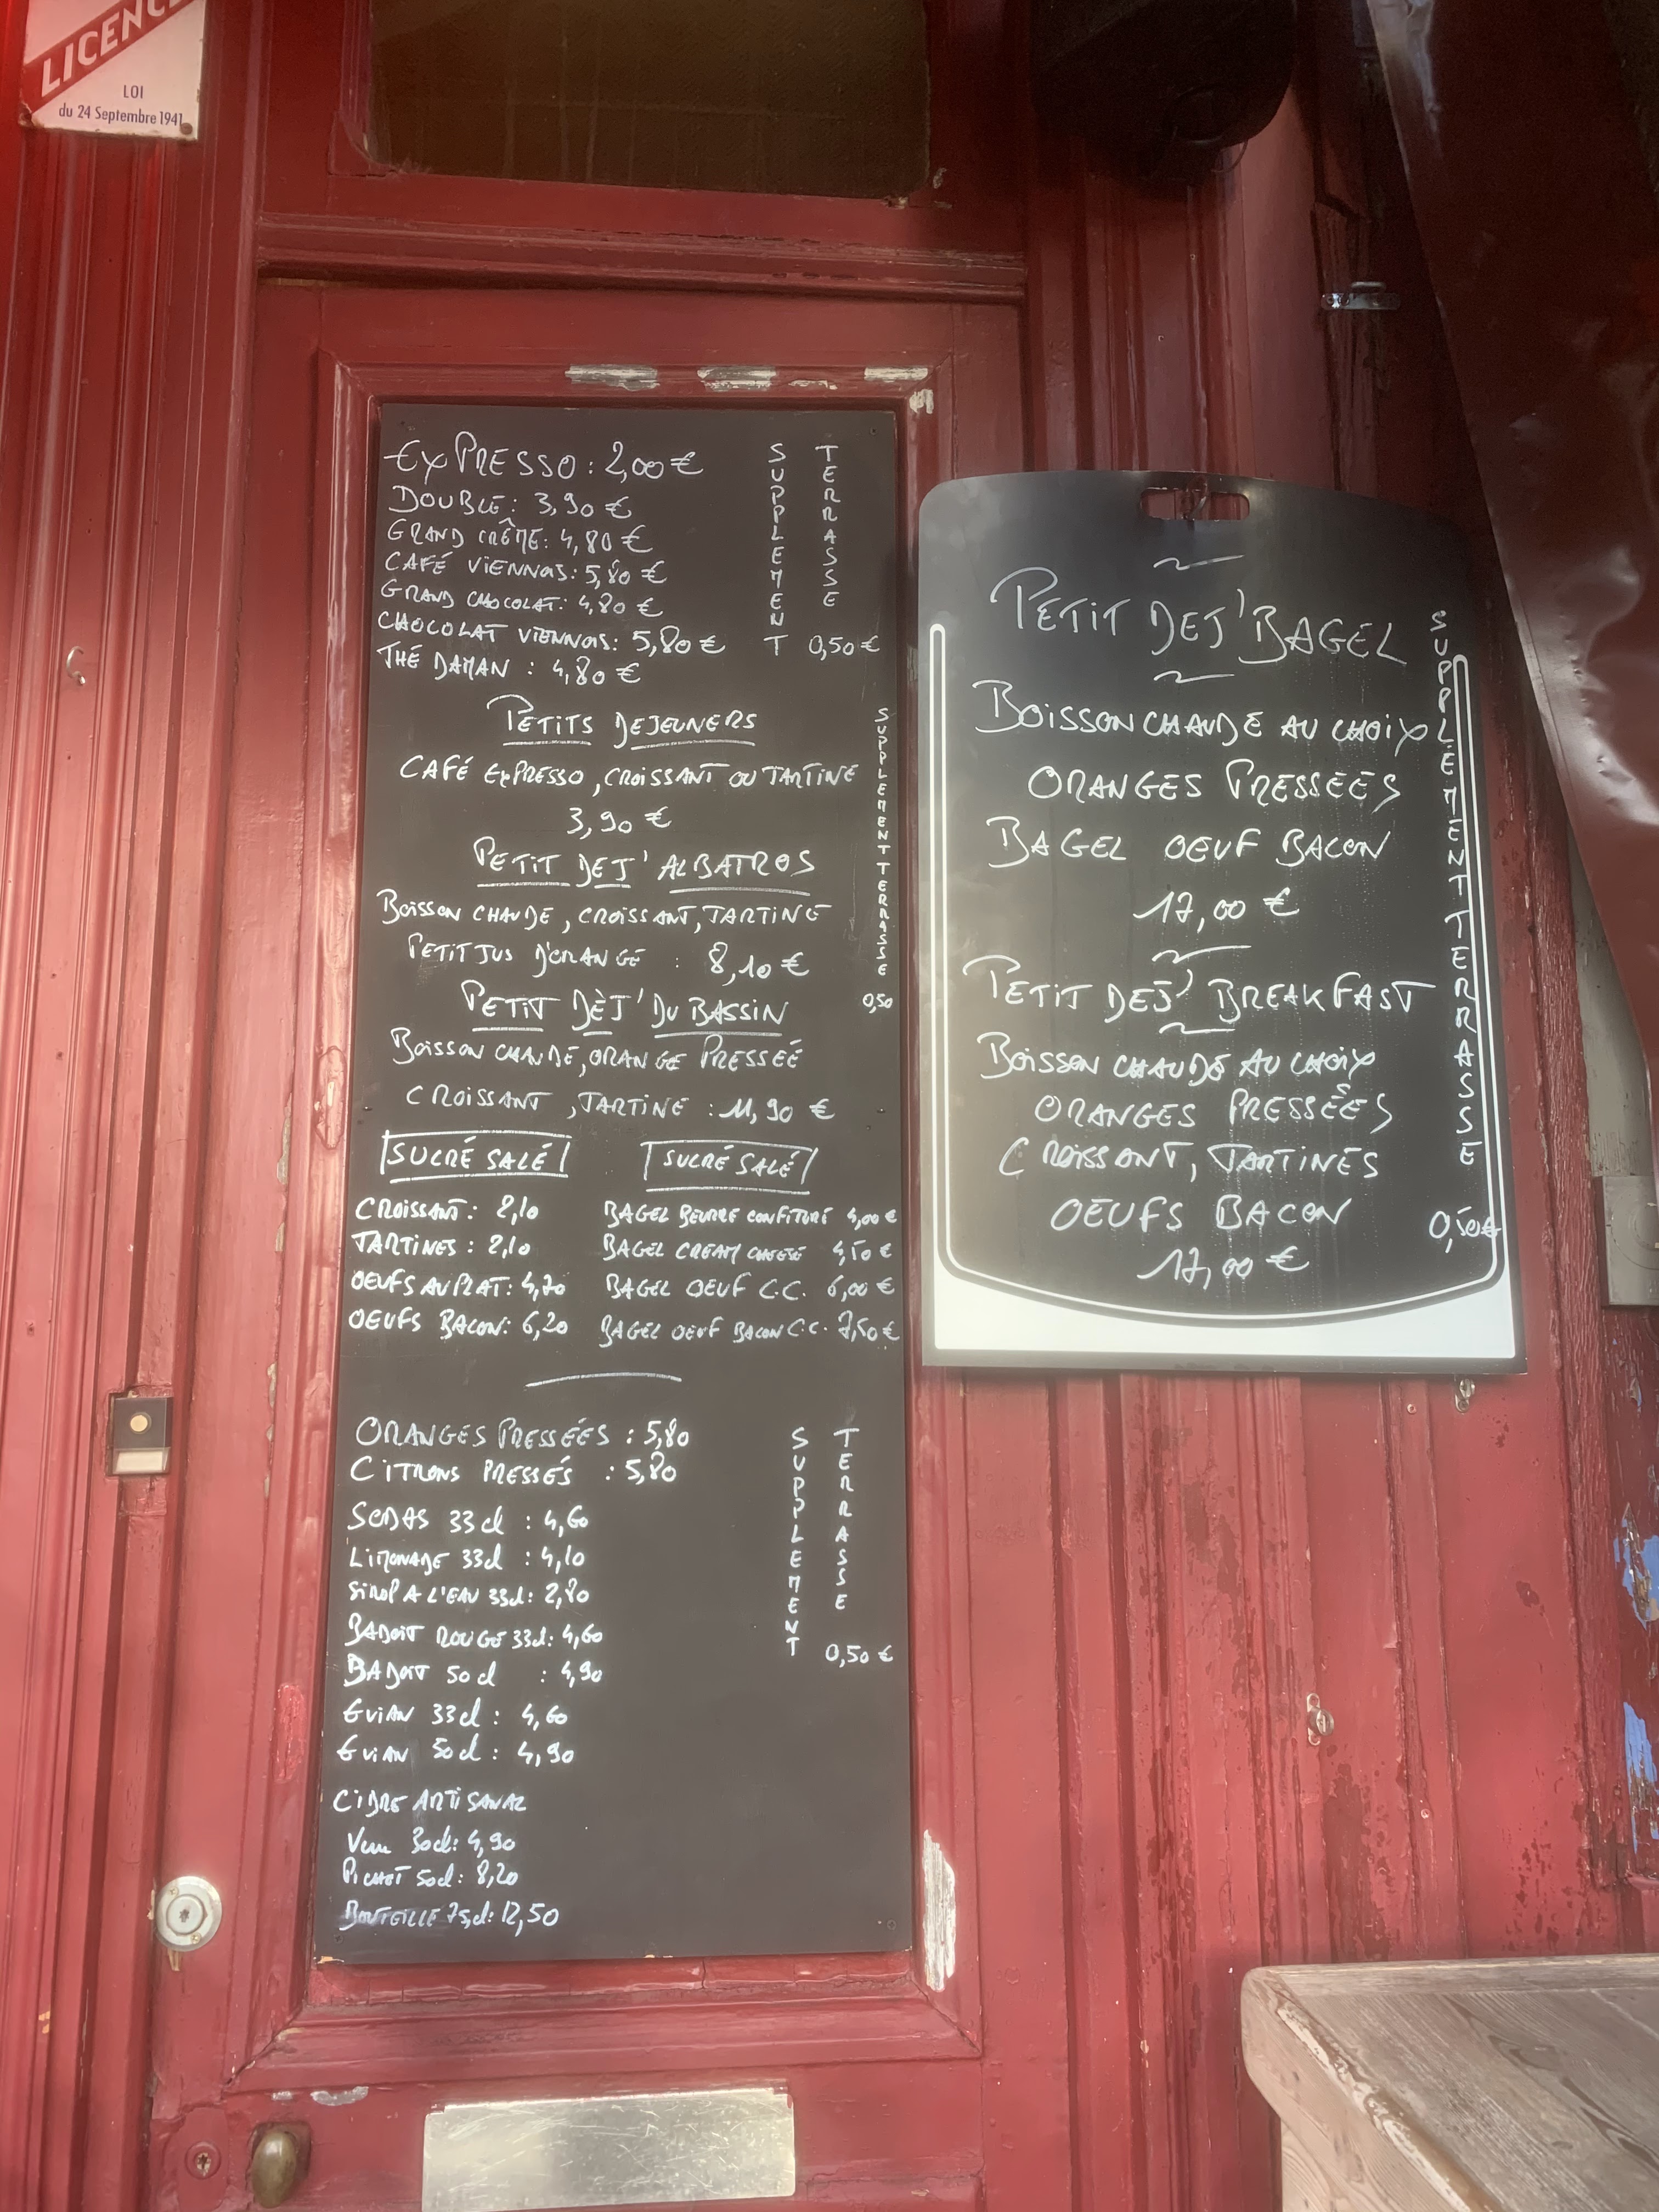 LICENC
LOI
du 24 Septembre 1941
EXPRESSO : 2,00 €
DOUBLE : 3,90 €
GRAND CRÊME : 4,80 €
CAFÉ VIENNOIS : 5,80 €
GRAND CHOCOLAT : 4,80 €
CHOCOLAT VIENNOIS : 5,80 €
THÉ DAMAN : 4,80 €
SUPPLEMENT
TERRASSE
0,50 €
PETITS DEJEUNERS
CAFÉ EXPRESSO, CROISSANT OU TARTINE
3,90 €
PETIT DEJ' ALBATROS
BOISSON CHAUDE, CROISSANT, TARTINE
PETIT JUS D'ORANGE : 8,10 €
PETIT DÈJ' DU BASSIN
BOISSON CHAUDE, ORANGE PRESSEÉ
CROISSANT, TARTINE : 11,90 €
SUPPLEMENT TERRASSE
0,50
SUCRÉ SALÉ
CROISSANT : 2,10
TARTINES : 2,10
OEUFS AU PLAT : 4,70
OEUFS BACON : 6,20
SUCRÉ SALÉ
BAGEL BEURRE CONFITURE 4,00 €
BAGEL CREAM CHEESE 4,50 €
BAGEL OEUF C.C. 6,00 €
BAGEL OEUF BACON C.C. 7,50 €
ORANGES PRESSÉES : 5,80
CITRONS PRESSÉS : 5,80
SODAS 33 cl : 4,60
LIMONADE 33cl : 4,10
SIROP A L'EAU 33cl : 2,80
BADOIT ROUGE 33cl : 4,60
BADOIT 50 cl : 4,90
EVIAN 33cl : 4,60
EVIAN 50cl : 4,90
SUPPLEMENT
TERRASSE
0,50 €
CIDRE ARTISANAL
Verre 30cl : 4,90
PICHET 50cl : 8,20
BOUTEILLE 75cl : 12,50
PETIT DEJ' BAGEL
BOISSON CHAUDE AU CHOIX
ORANGES PRESSEES
BAGEL OEUF BACON
17,00 €
PETIT DEJ' BREAKFAST
BOISSON CHAUDE AU CHOIX
ORANGES PRESSÉES
CROISSANT, TARTINES
OEUFS BACON
17,00 €
SUPPLEMENT TERRASSE
0,50 €